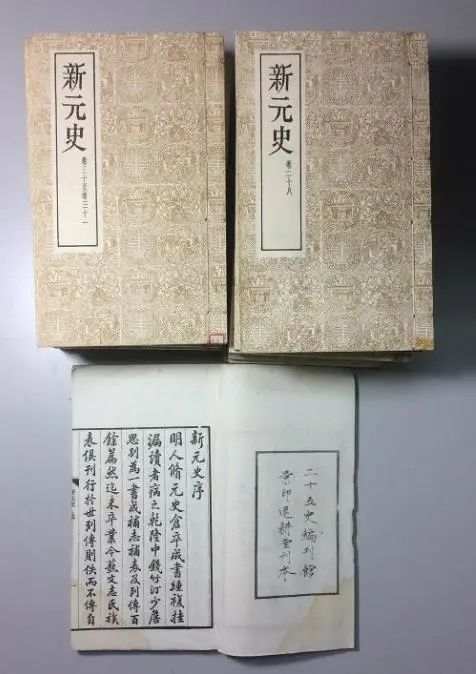 新元史
卷三十至卷三十一
新元史
卷二十八
新元史序
明人脩元史倉卒成書踵複挂
漏讀者病之乾隆中錢竹汀少詹
思別為一書成補志補表及列傳百
餘篇然迄未卒業今藝文志氏族
表俱刊行於世列傳則佚而不傳自
二十五史編刊館
景印退耕堂刊本